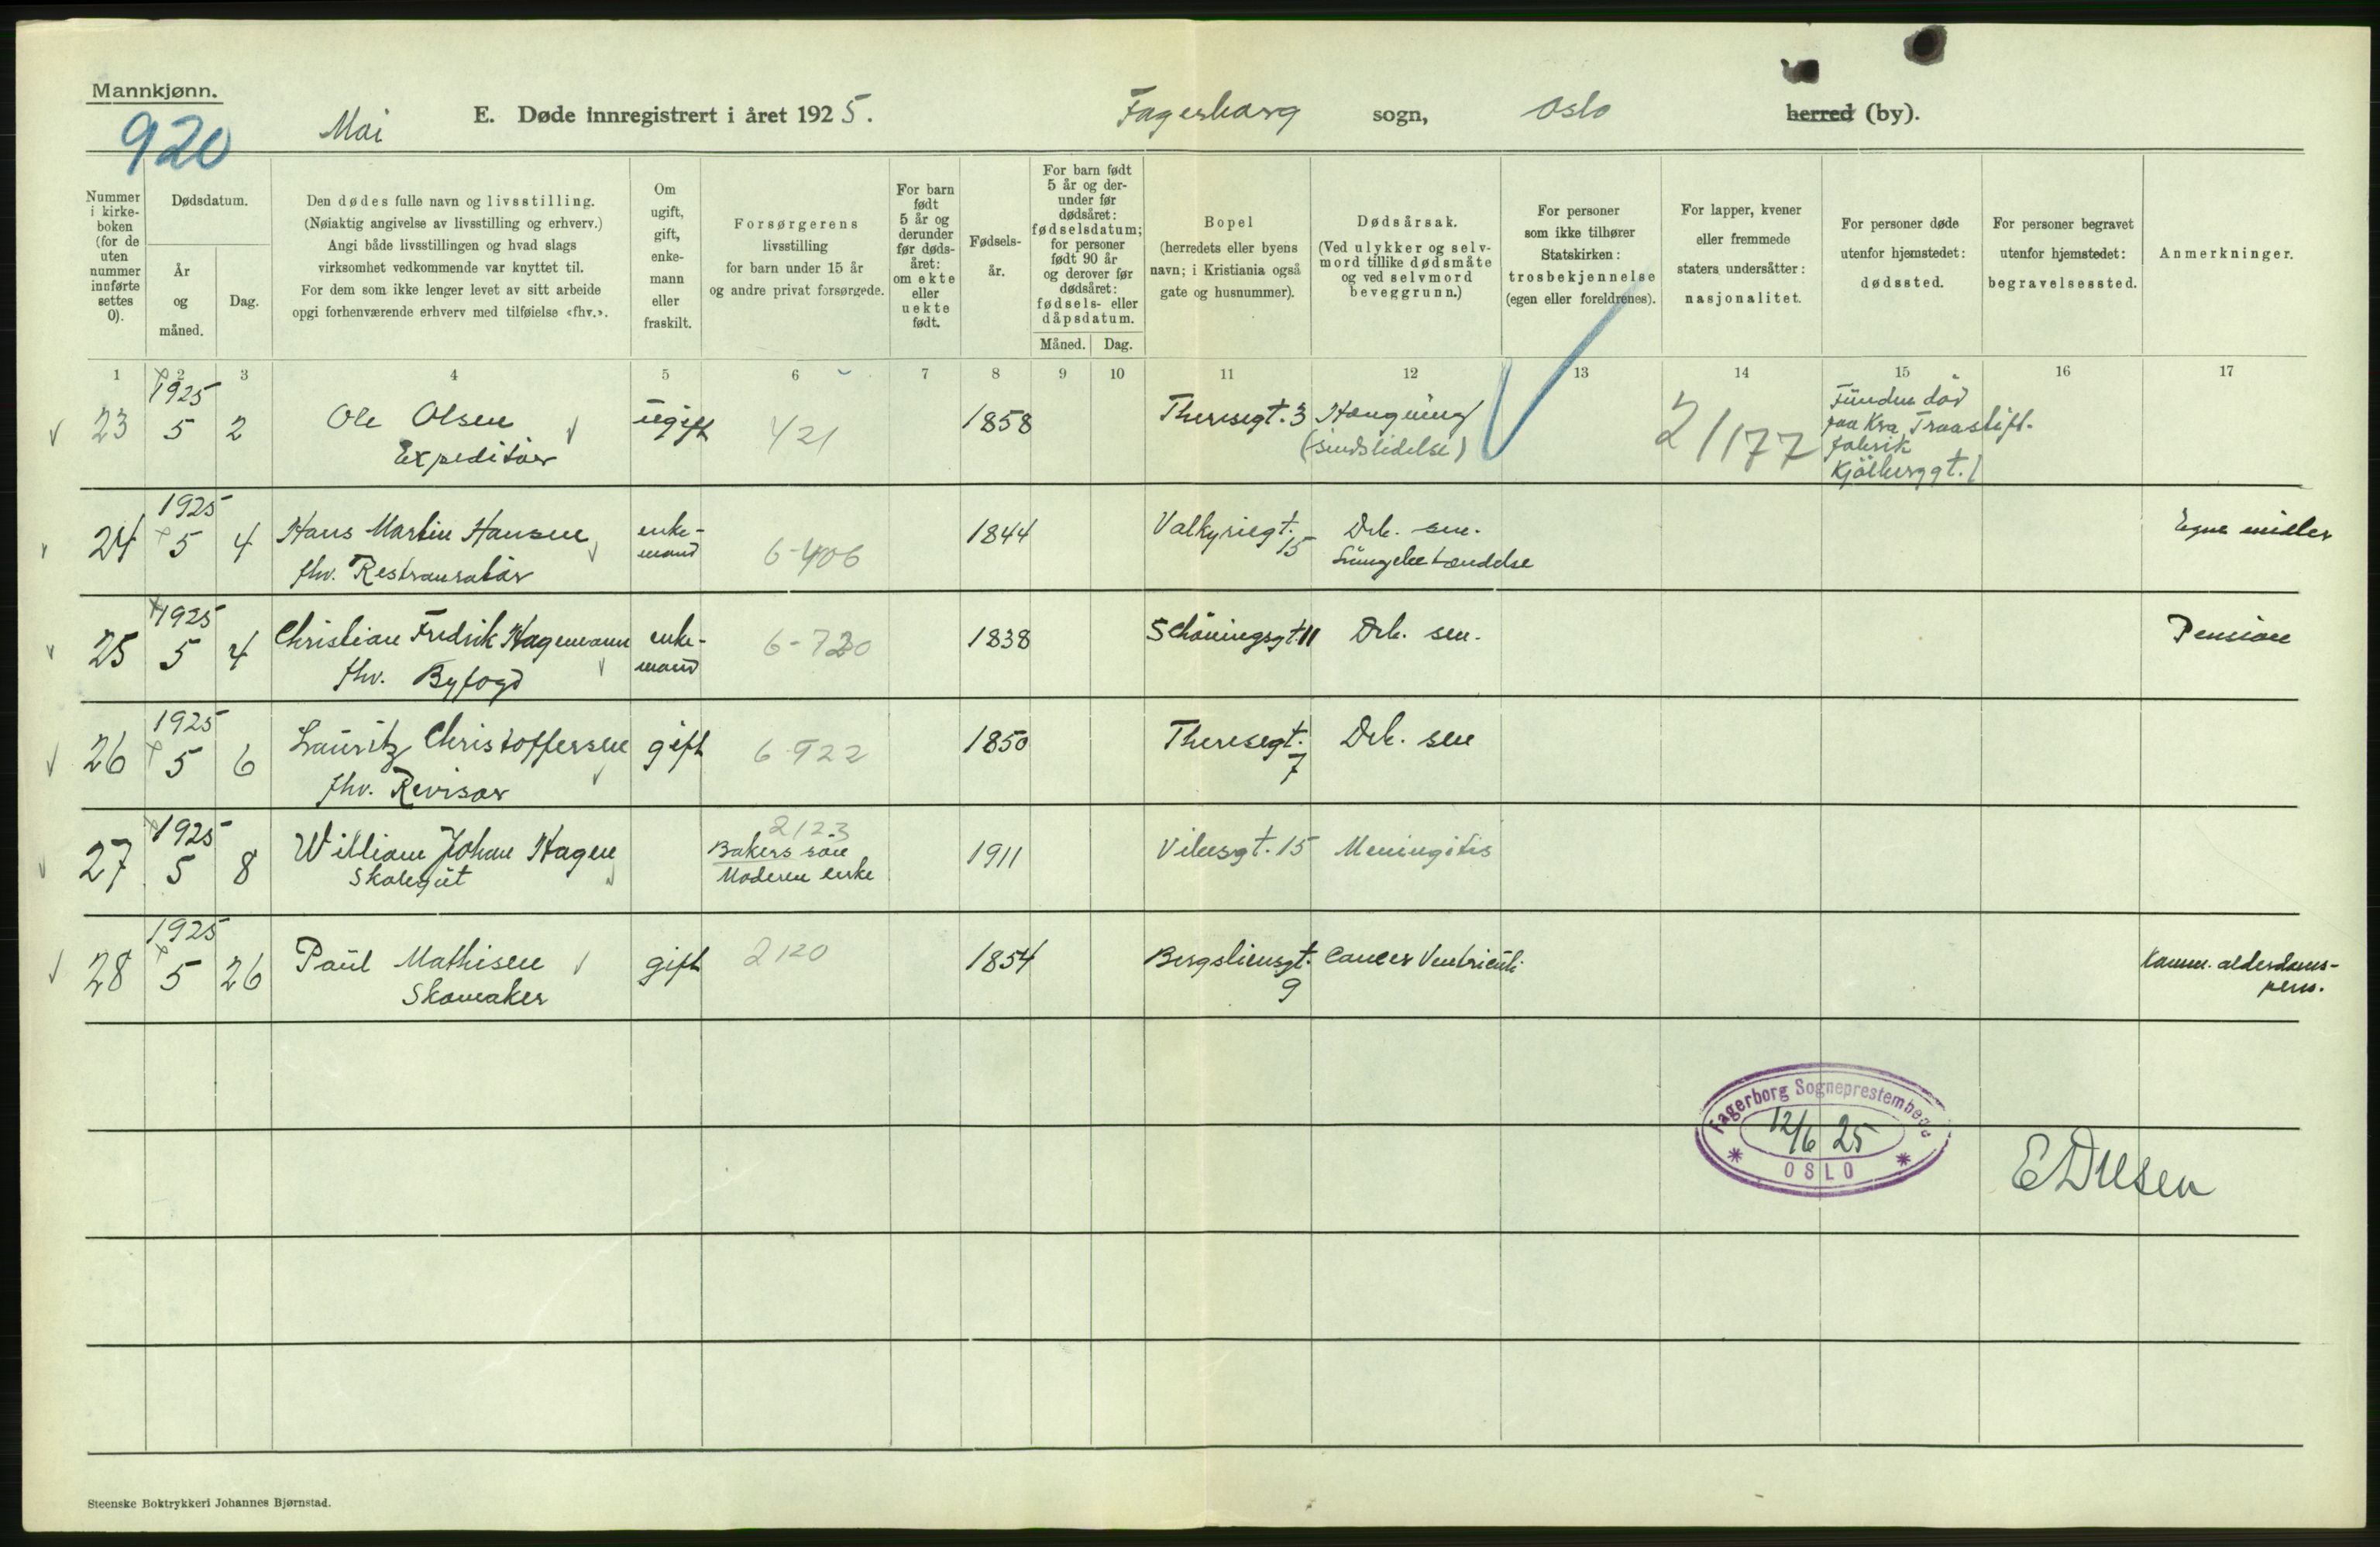 Mannkjønn.
920
Mai
E. Døde innregistrert i året 1925.
Fagerborg sogn, Oslo herred (by).
Nummer i kirke-boken (for de uten nummer innførte settes 0).
Dødsdatum.
År og måned.
Dag.
Den dødes fulle navn og livsstilling.
(Nøiaktig angivelse av livsstilling og erhverv.)
Angi både livsstillingen og hvad slags
virksomhet vedkommende var knyttet til.
For dem som ikke lenger levet av sitt arbeide
opgi forhenværende erhverv med tilføielse «fhv.».
Om ugift, gift, enke-mann eller fraskilt.
Forsørgerens
livsstilling
for barn under 15 år
og andre privat forsørgede.
For barn født 5 år og derunder før døds-året: om ekte eller uekte født.
Fødsels-år.
For barn født 5 år og der-under før dødsåret: fødselsdatum; for personer født 90 år og derover før dødsåret: fødsels- eller dåpsdatum.
Måned.
Dag.
Bopel
(herredets eller byens
navn; i Kristiania også
gate og husnummer).
Dødsårsak.
(Ved ulykker og selv-
mord tillike dødsmåte
og ved selvmord
beveggrunn.)
For personer
som ikke tilhører
Statskirken:
trosbekjennelse
(egen eller foreldrenes).
For lapper, kvener
eller fremmede
staters undersåtter:
nasjonalitet.
For personer døde
utenfor hjemstedet:
dødssted.
For personer begravet
utenfor hjemstedet:
begravelsessted.
Anmerkninger.
1 2 3 4 5 6 7 8 9 10 11 12 13 14 15 16 17
23 1925 5 2 Ole Olsen ugift 421 1858 Theresegt. 3 Hængning 2/177 Funden død
Expeditør (sindslidelse) paa Kra Traastift-
fabrik
Kjølberggt. 1
24 1925 5 4 Hans Martin Hansen enke- 6-406 1844 Valkyriegt. 15 Deb. sen. Egne midler
fhv. Restauratør mand Lungebetændelse
25 1925 5 4 Christian Fredrik Hagemann enke- 6-720 1838 Schöningsgt. 11 Deb. sen. Pension
fhv. Byfogd mand
26 1925 5 6 Lauritz Christoffersen gift 6-922 1850 Theresegt. 7 Deb. sen
fhv. Revisor
27 1925 5 8 William Johan Hagen 2123 1911 Vibesgt. 15 Meningitis
Skolegut Bakers søn
Moderen enke
28 1925 5 26 Paul Mathisen gift 2120 1854 Bergsliensgt. 9 Cancer Ventriculi Komm. alderdoms-
Skomaker pens.
Fagerborg Sogneprestembede
12/6 25
OSLO
Steenske Boktrykkeri Johannes Bjørnstad.